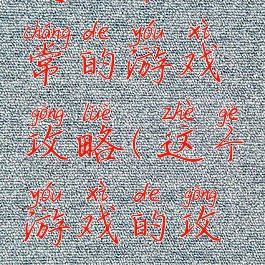 cháng de yóu xì
常的游戏
gōng lüè zhè ge
攻略(这个
yóu xì de gōng
游戏的攻